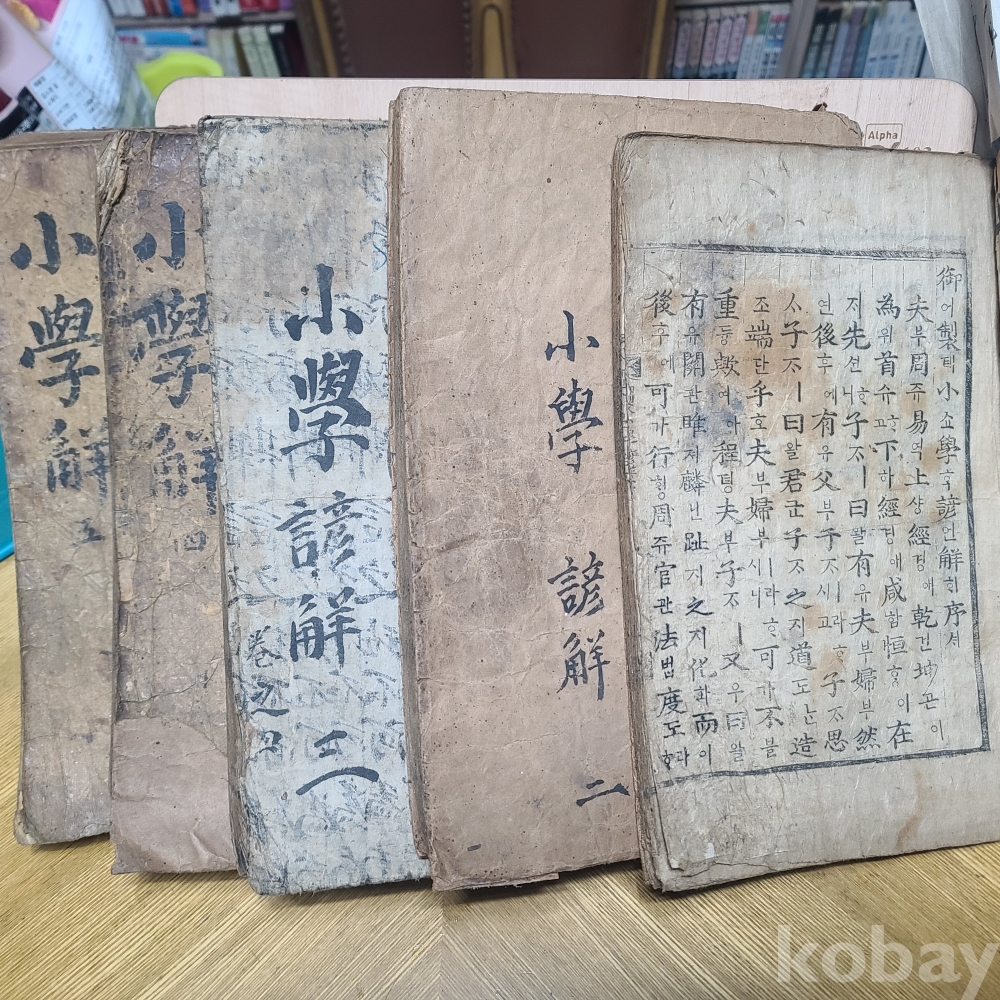 御어製졔小쇼學학諺언解ᄒᆡ序셔
夫부周쥬易역上샹經경애乾건坤곤이
為위首슈ᄒᆞ고下하經경애咸함恒ᄒᆞᆼ이在
ᄌᆡᄒᆞ니先션子ᄌᆞㅣ曰왈有유夫부婦부然
연後후에有유父부子ᄌᆞㅣ라ᄒᆞ시고子ᄌᆞ思
ᄉᆞ子ᄌᆞㅣ曰왈君군子ᄌᆞ之지道도ᄂᆞᆫ造
조端단乎호夫부婦부ㅣ라ᄒᆞ시니可가不블
重듕歟여아程뎡夫부子ᄌᆞㅣ又우曰왈
有유關관雎져麟닌趾지之지化화而이
後후에可가行ᄒᆡᆼ周쥬官관法법度도ㅣ라ᄒᆞ
小學 諺解 二
小學諺解 三
卷之
小學解 四
小學解 五
Alpha
kobay